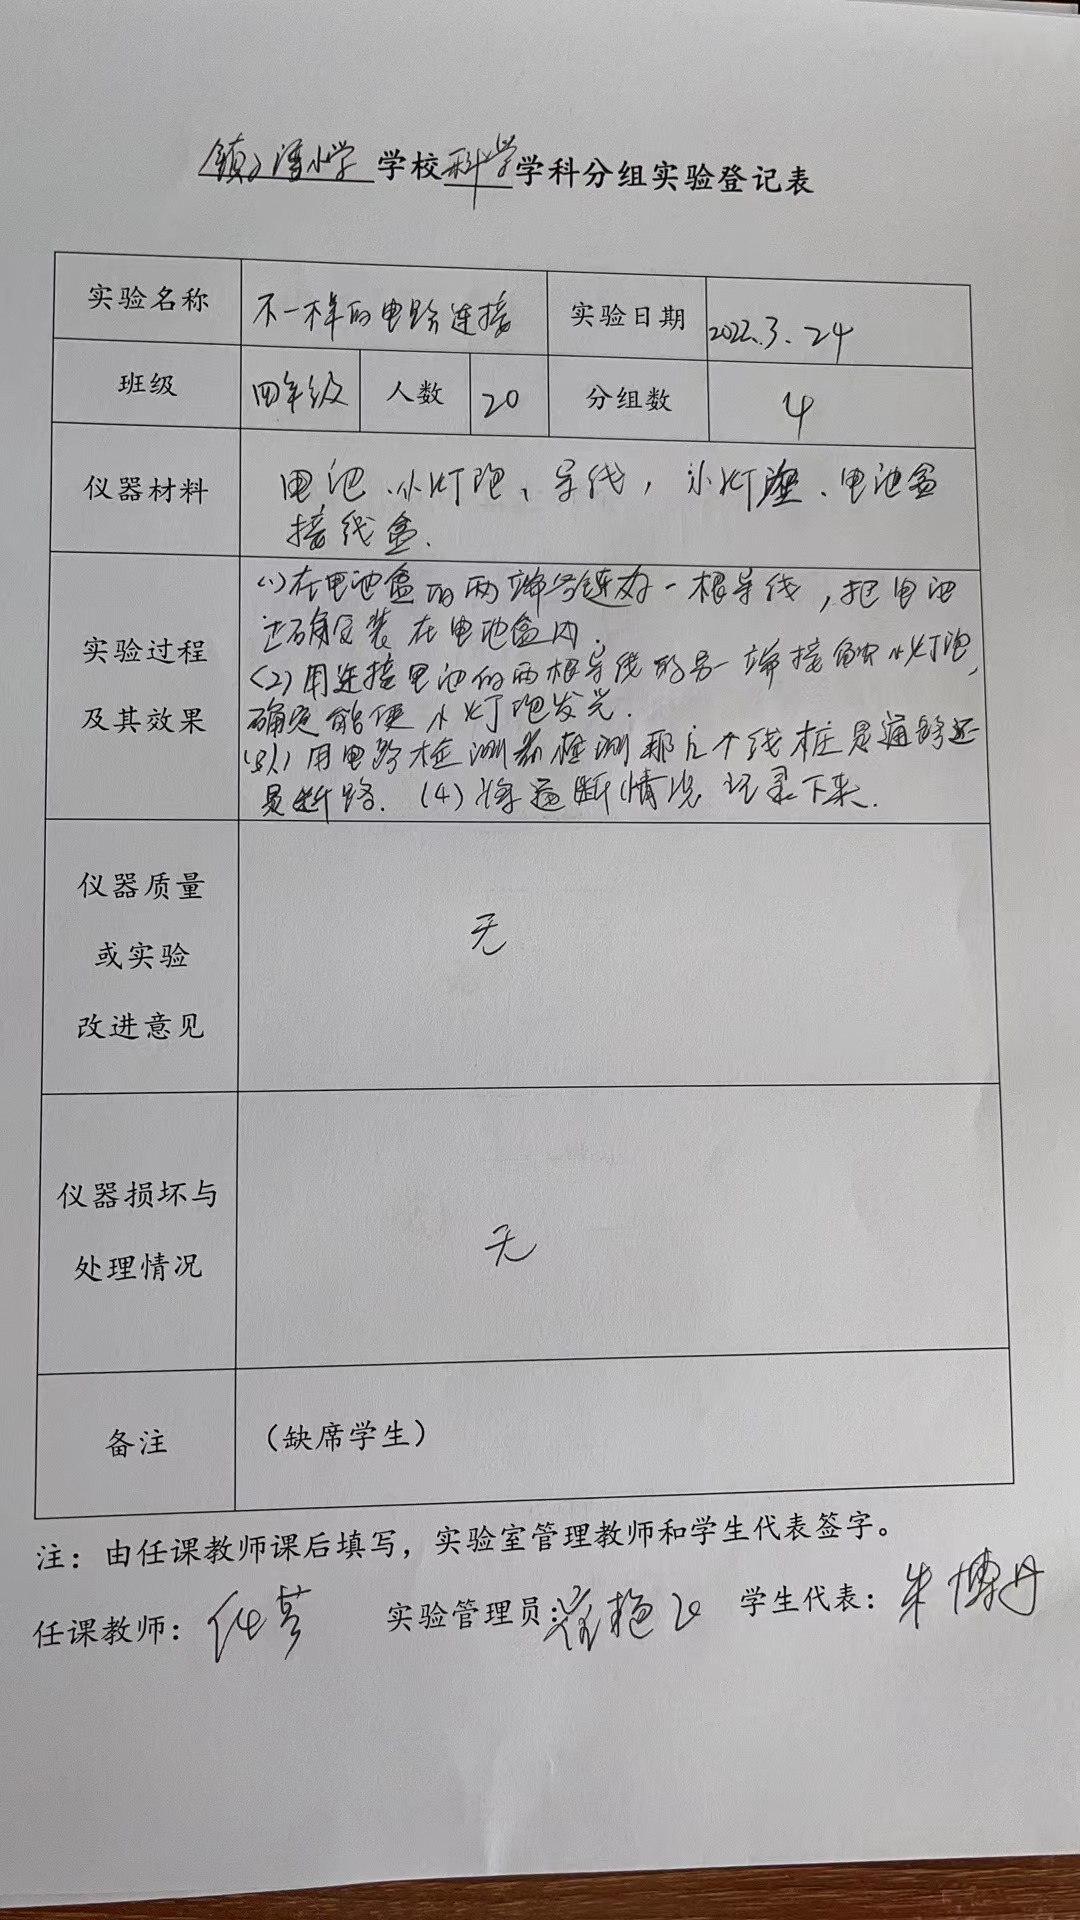 镇子湾小学 学校 科学 学科分组实验登记表
实验名称 不一样的电路连接 实验日期 2022.3.24
班级 四年级 人数 20 分组数 4
仪器材料 电池、小灯泡、导线，小灯座、电池盒
接线盒.
(1)在电池盒的两端各连好一根导线，把电池
正确安装在电池盒内.
实验过程 (2)用连接电池的两根导线的另一端接触小灯泡,
及其效果 确定能使小灯泡发光.
(3)用电路检测器检测那几个线桩是通路还
是断路. (4)将通断情况记录下来.
仪器质量
或实验 无
改进意见
仪器损坏与
处理情况 无
备注 （缺席学生）
注：由任课教师课后填写，实验室管理教师和学生代表签字。
任课教师： 实验管理员: 学生代表：朱博丹